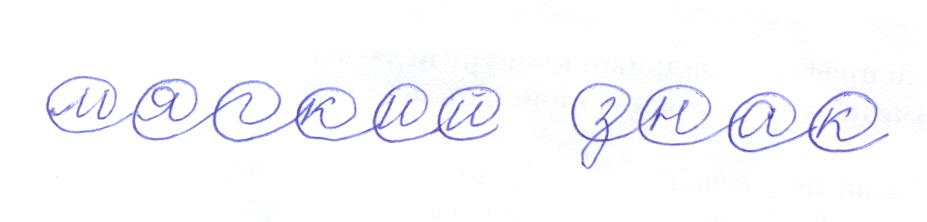 мягкий знак